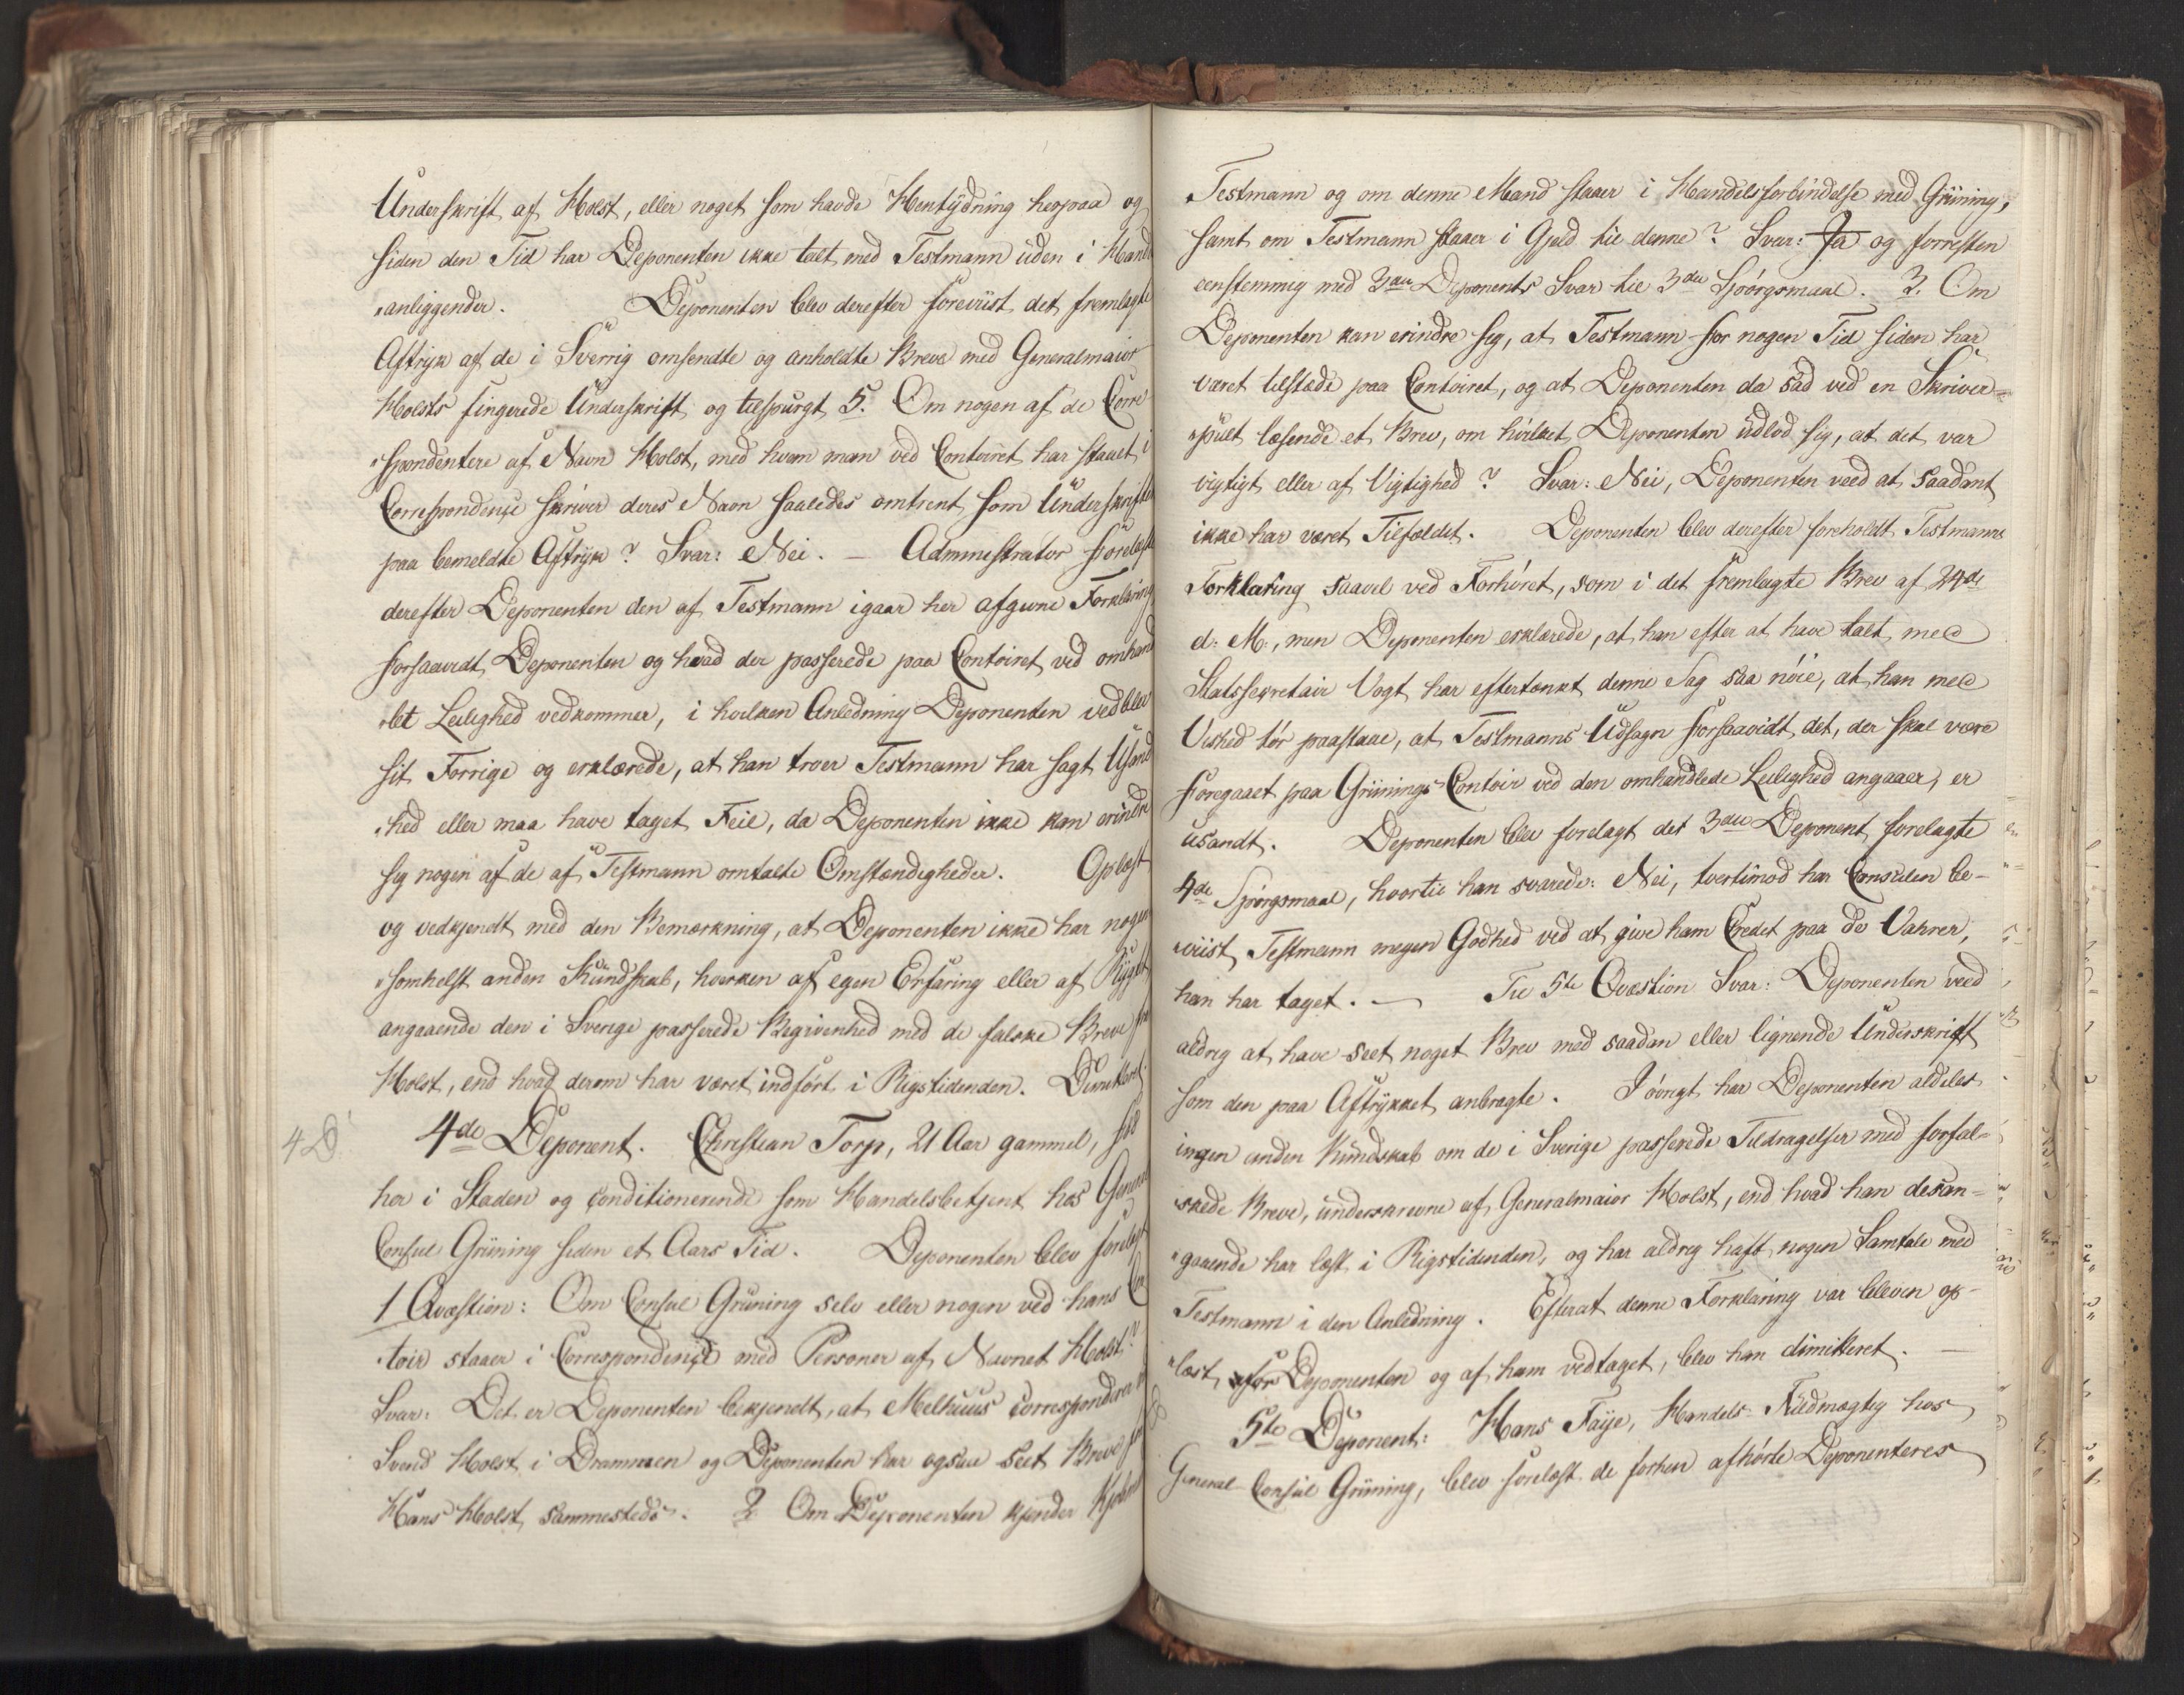 Underskrift af Holst, eller noget som havde Hentydning herpaa og
siden den Tid har Deponenten ikke talt med Testmann uden i Handl
anliggender. Deponenten blev derefter foreviist det fremlagte
Aftryk af de i Sverrig omsendte og anholdte Breve med Generalmaior
Holsts fingerede Underskrift og tilspurgt 5. Om nogen af de Corre
„spondentere af Navn Holst, med hvem man ved Contoiret har staaet i
Correspondence skriver deres Navn saaledes omtrent som Underskriften
paa bemeldte Aftryk? Svar: Nei. — Administrator forelæste
derefter Deponenten den af Testmann igaar her afgivne Forklaring
forsaavidt Deponenten og hvad der passerede paa Contoiret ved omhand
„let Leilighed vedkommer, i hvilken Anledning Deponenten vedblev
sit Forrige og erklærede, at han troer Testmann har sagt Usand
„hed eller maa have taget Feil, da Deponenten ikke kan erindre
sig nogen af de af Testmann omtalte Omstændigheder. Oplæst
og vedkjendt med den Bemærkning, at Deponenten ikke har nogen
„somhelst anden Kundskab, hverken af egen Erfaring eller af Rygte
angaaende den i Sverige passerede Begivenhed med de falske Breve fra
Holst, end hvad derom har været indført i Rigstidenden. Dimitteret.
4 D. 4de Deponent. Christian Torp, 21 Aar gammel, født
her i Staden og conditionerende som Handelsbetjent hos General
Consul Grüning siden et Aars Tid. Deponenten blev forelagt
1 Qvæstion: Om Consul Grüning selv eller nogen ved hans Con
„toir staaer i Correspondence med Personer af Navnet Holst?
Svar: Det er Deponenten bekjendt, at Melhuus corresponderer m
Svend Holst i Drammen og Deponenten har ogsaa seet Breve fra
Hans Holst sammesteds. 2 Om Deponenten kjender Kjøbm
Testmann og om denne Mand staaer i Handelsforbindelse med Grüning,
samt om Testmann staaer i Gjæld til denne? Svar: Ja og forresten
eenstemmig med 3die Deponents Svar til 3die Spørgsmaal. 3. Om
Deponenten kan erindre sig, at Testmann for nogen Tid siden har
været tilstæde paa Contoiret, og at Deponenten da sad ved en Skriver=
„pult læsende et Brev, om hvilket Deponenten udlod sig, at det var
vigtigt eller af Vigtighed? Svar: Nei, Deponenten veed at saadant
ikke har været Tilfældet. Deponenten blev derefter foreholdt Testmanns
Forklaring saavel ved Forhøret, som i det fremlagte Brev af 24de
d: M:, men Deponenten erklærede, at han efter at have talt med
Statssecretair Vogt har eftertænkt denne Sag saa nøie, at han med
Vished tør paastaae, at Testmanns Udsagn forsaavidt det, der skal være
foregaaet paa Grünings Contoir ved den omhandlede Leilighed angaaer, er
usandt. Deponenten blev forelagt det 3die Deponent forelagte
4de Spørgsmaal, hvortil han svarede: Nei, tvertimod har Consulen be-
„viist Testmann megen Godhed ved at give ham Credit paa de Vahrer,
han har taget. — Til 5te Qvæstion Svar: Deponenten veed
aldrig at have seet noget Brev med saadan eller lignende Underskrift
som den paa Aftrykket anbragte. I øvrigt har Deponenten aldeles
ingen anden Kundskab om de i Sverige passerede Tildragelser med forfal=
„skede Breve, underskrevne af Generalmaior Holst, end hvad han desan=
„gaaende har læst i Rigstidenden, og har aldrig haft nogen Samtale med
Testmann i den Anledning. Efterat denne Forklaring var bleven op-
„læst for Deponenten og af ham vedtaget, blev han dimitteret. —
5te Deponent: Hans Faye, Handels-Fuldmægtig hos
General-Consul Grüning, blev forelæst de forhen afhørte Deponenteres